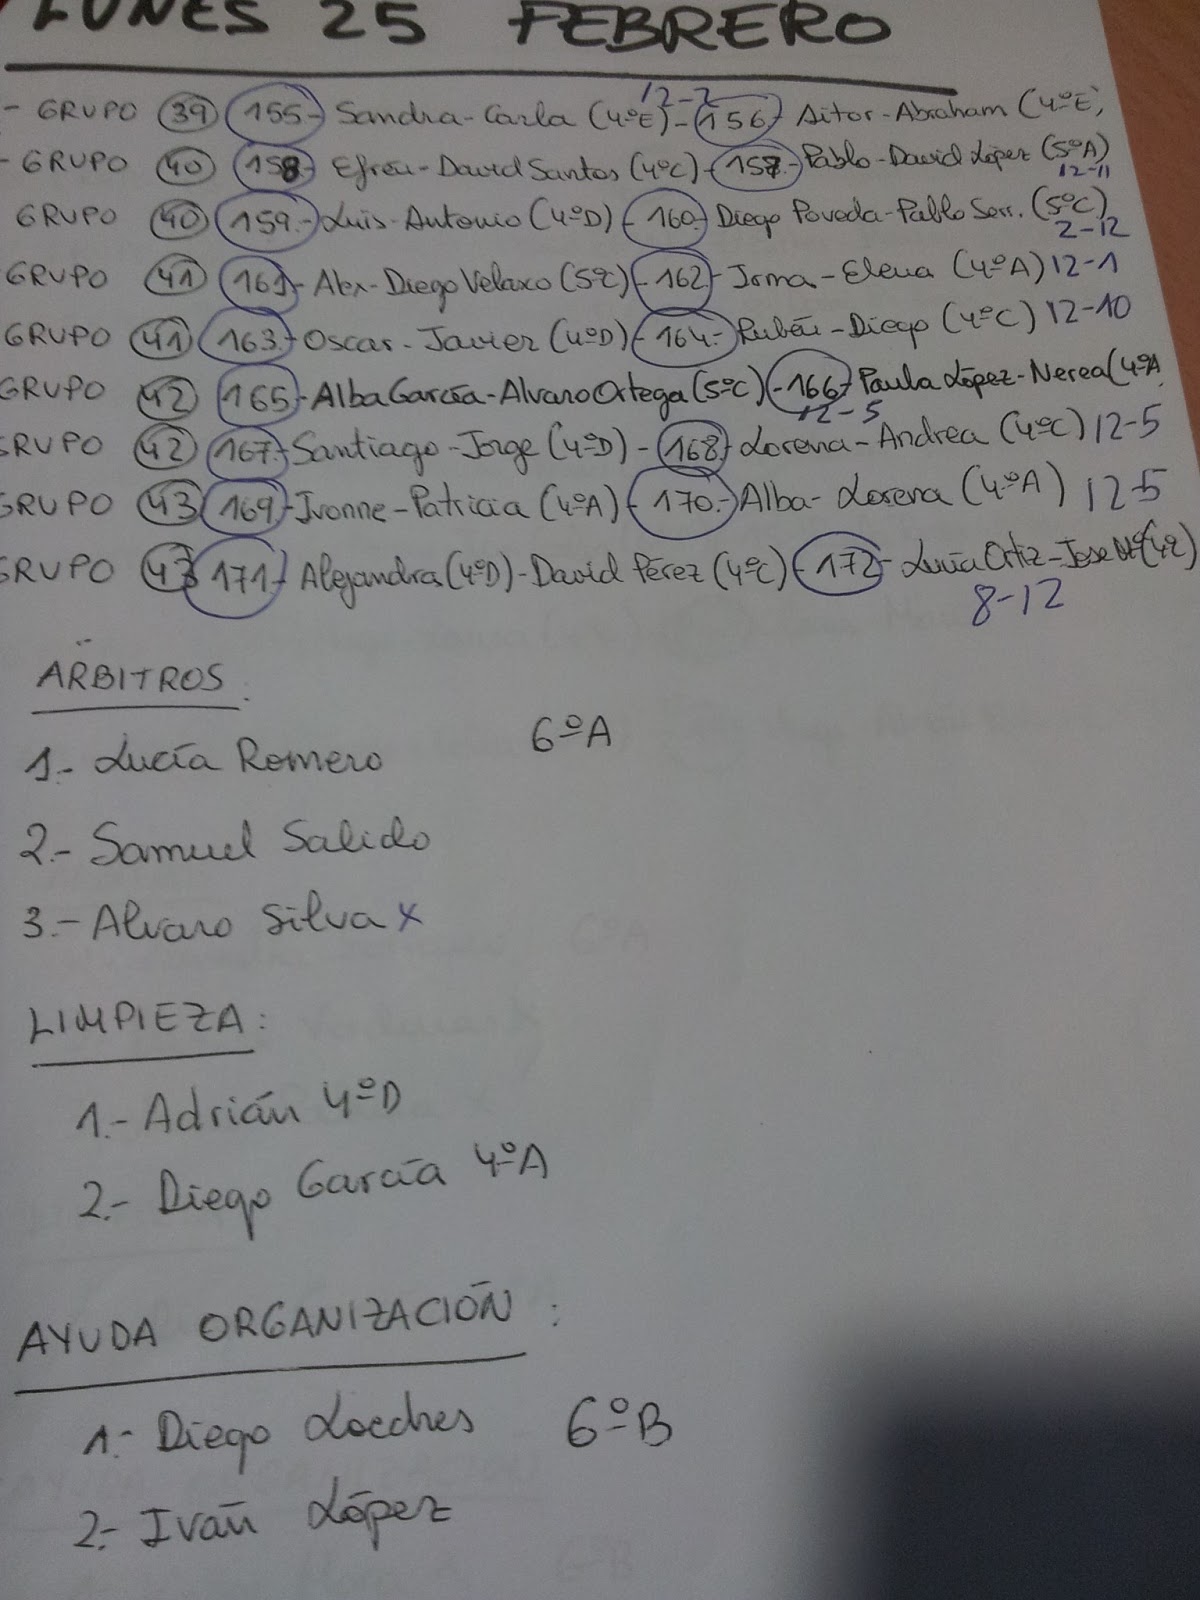 LUNES 25 FEBRERO
- GRUPO 39 155.- Sandra-Carla (4ºE) - 156.- Aitor-Abraham (4ºE)
12-2
- GRUPO 40 158.- Efrén-David Santos (4ºC) - 157.- Pablo-David López (5ºA)
12-11
GRUPO 40 159.- Luis-Antonio (4ºD) - 160.- Diego Poveda-Pablo Serr. (5ºC)
2-12
GRUPO 41 161.- Alex-Diego Velaxo (5ºC) - 162.- Irma-Elena (4ºA) 12-1
GRUPO 41 163.- Oscar-Javier (4ºD) - 164.- Rubén-Diego (4ºC) 12-10
GRUPO 42 165.- Alba García-Alvaro Ortega (5ºC) - 166.- Paula López-Nerea (4ºA
12-5
GRUPO 42 167.- Santiago-Jorge (4ºD) - 168.- Lorena-Andrea (4ºC) 12-5
GRUPO 43 169.- Ivonne-Patricia (4ºA) - 170.- Alba-Lorena (4ºA) 12-5
GRUPO 43 171.- Alejandra (4ºD)-David Pérez (4ºC) - 172.- Lucía Ortiz-Jose Mª
8-12
ÁRBITROS:
1.- Lucía Romero 6ºA
2.- Samuel Salido
3.- Alvaro Silva x
LIMPIEZA:
1.- Adrián 4ºD
2.- Diego García 4ºA
AYUDA ORGANIZACIÓN:
1.- Diego 6ºB
2.- Iván López